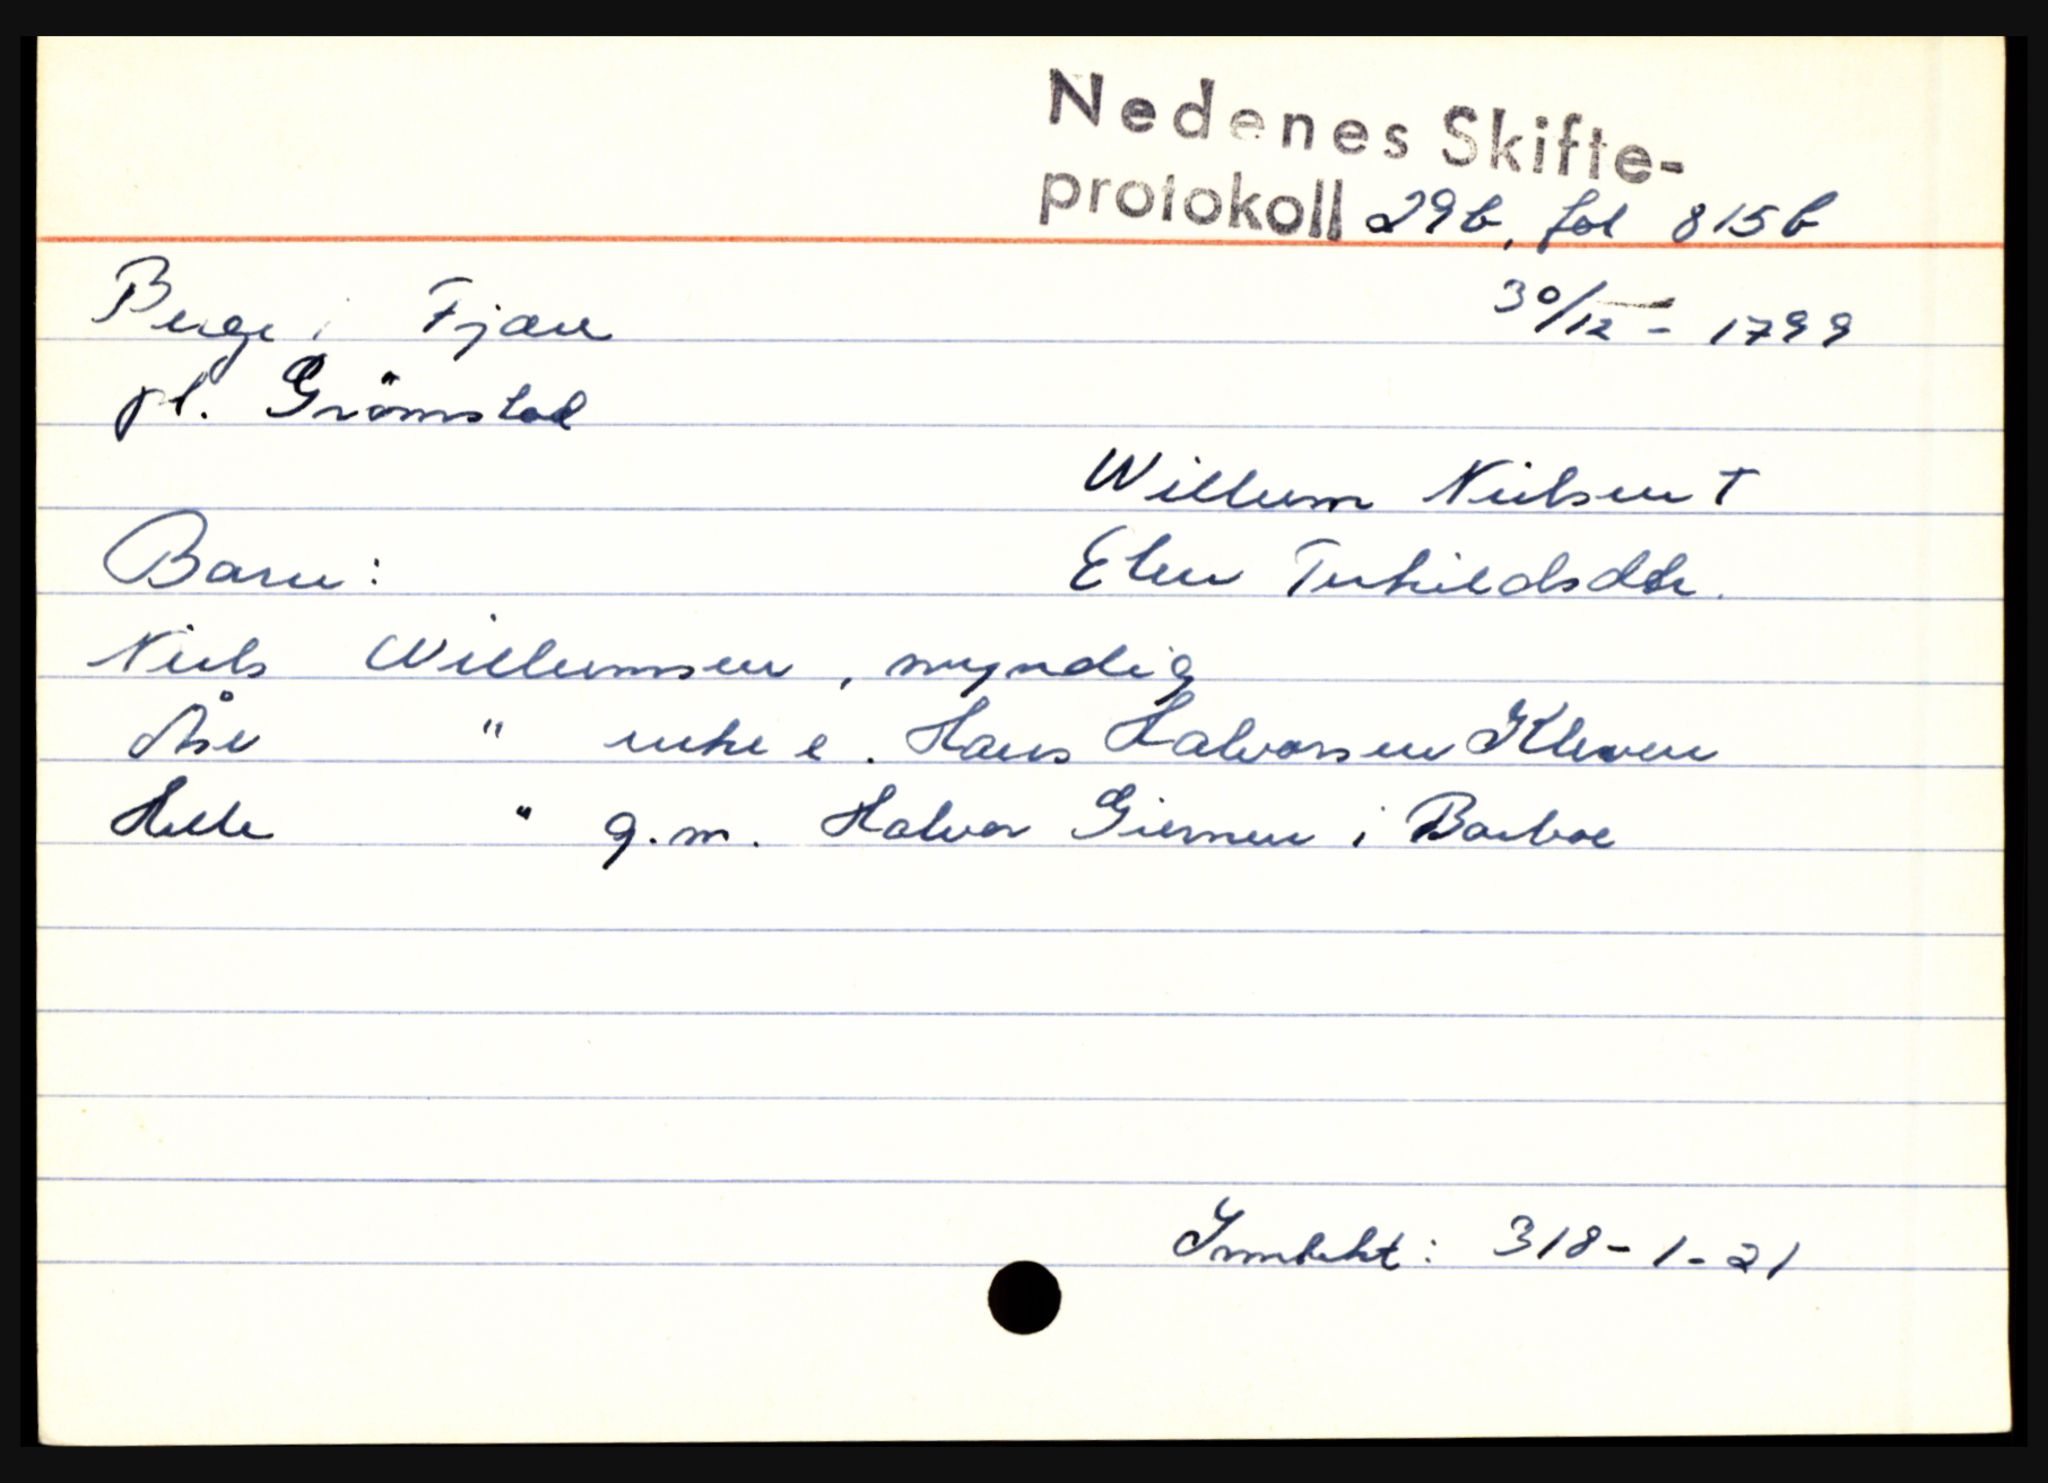 Nedenes Skifte-
protokoll 29b, fol 815b
Berge i Fjære
30/12 - 1799
pl. Grömstad
Willum Nielsen †
Barn:
Elen Terkildsdtr.
Niels Willumsen, myndig
Åse " enke e. Hans Halvorsen Kleven
Helle " g.m. Halvor Giermen i Barboe
Inntekt: 318-1-21